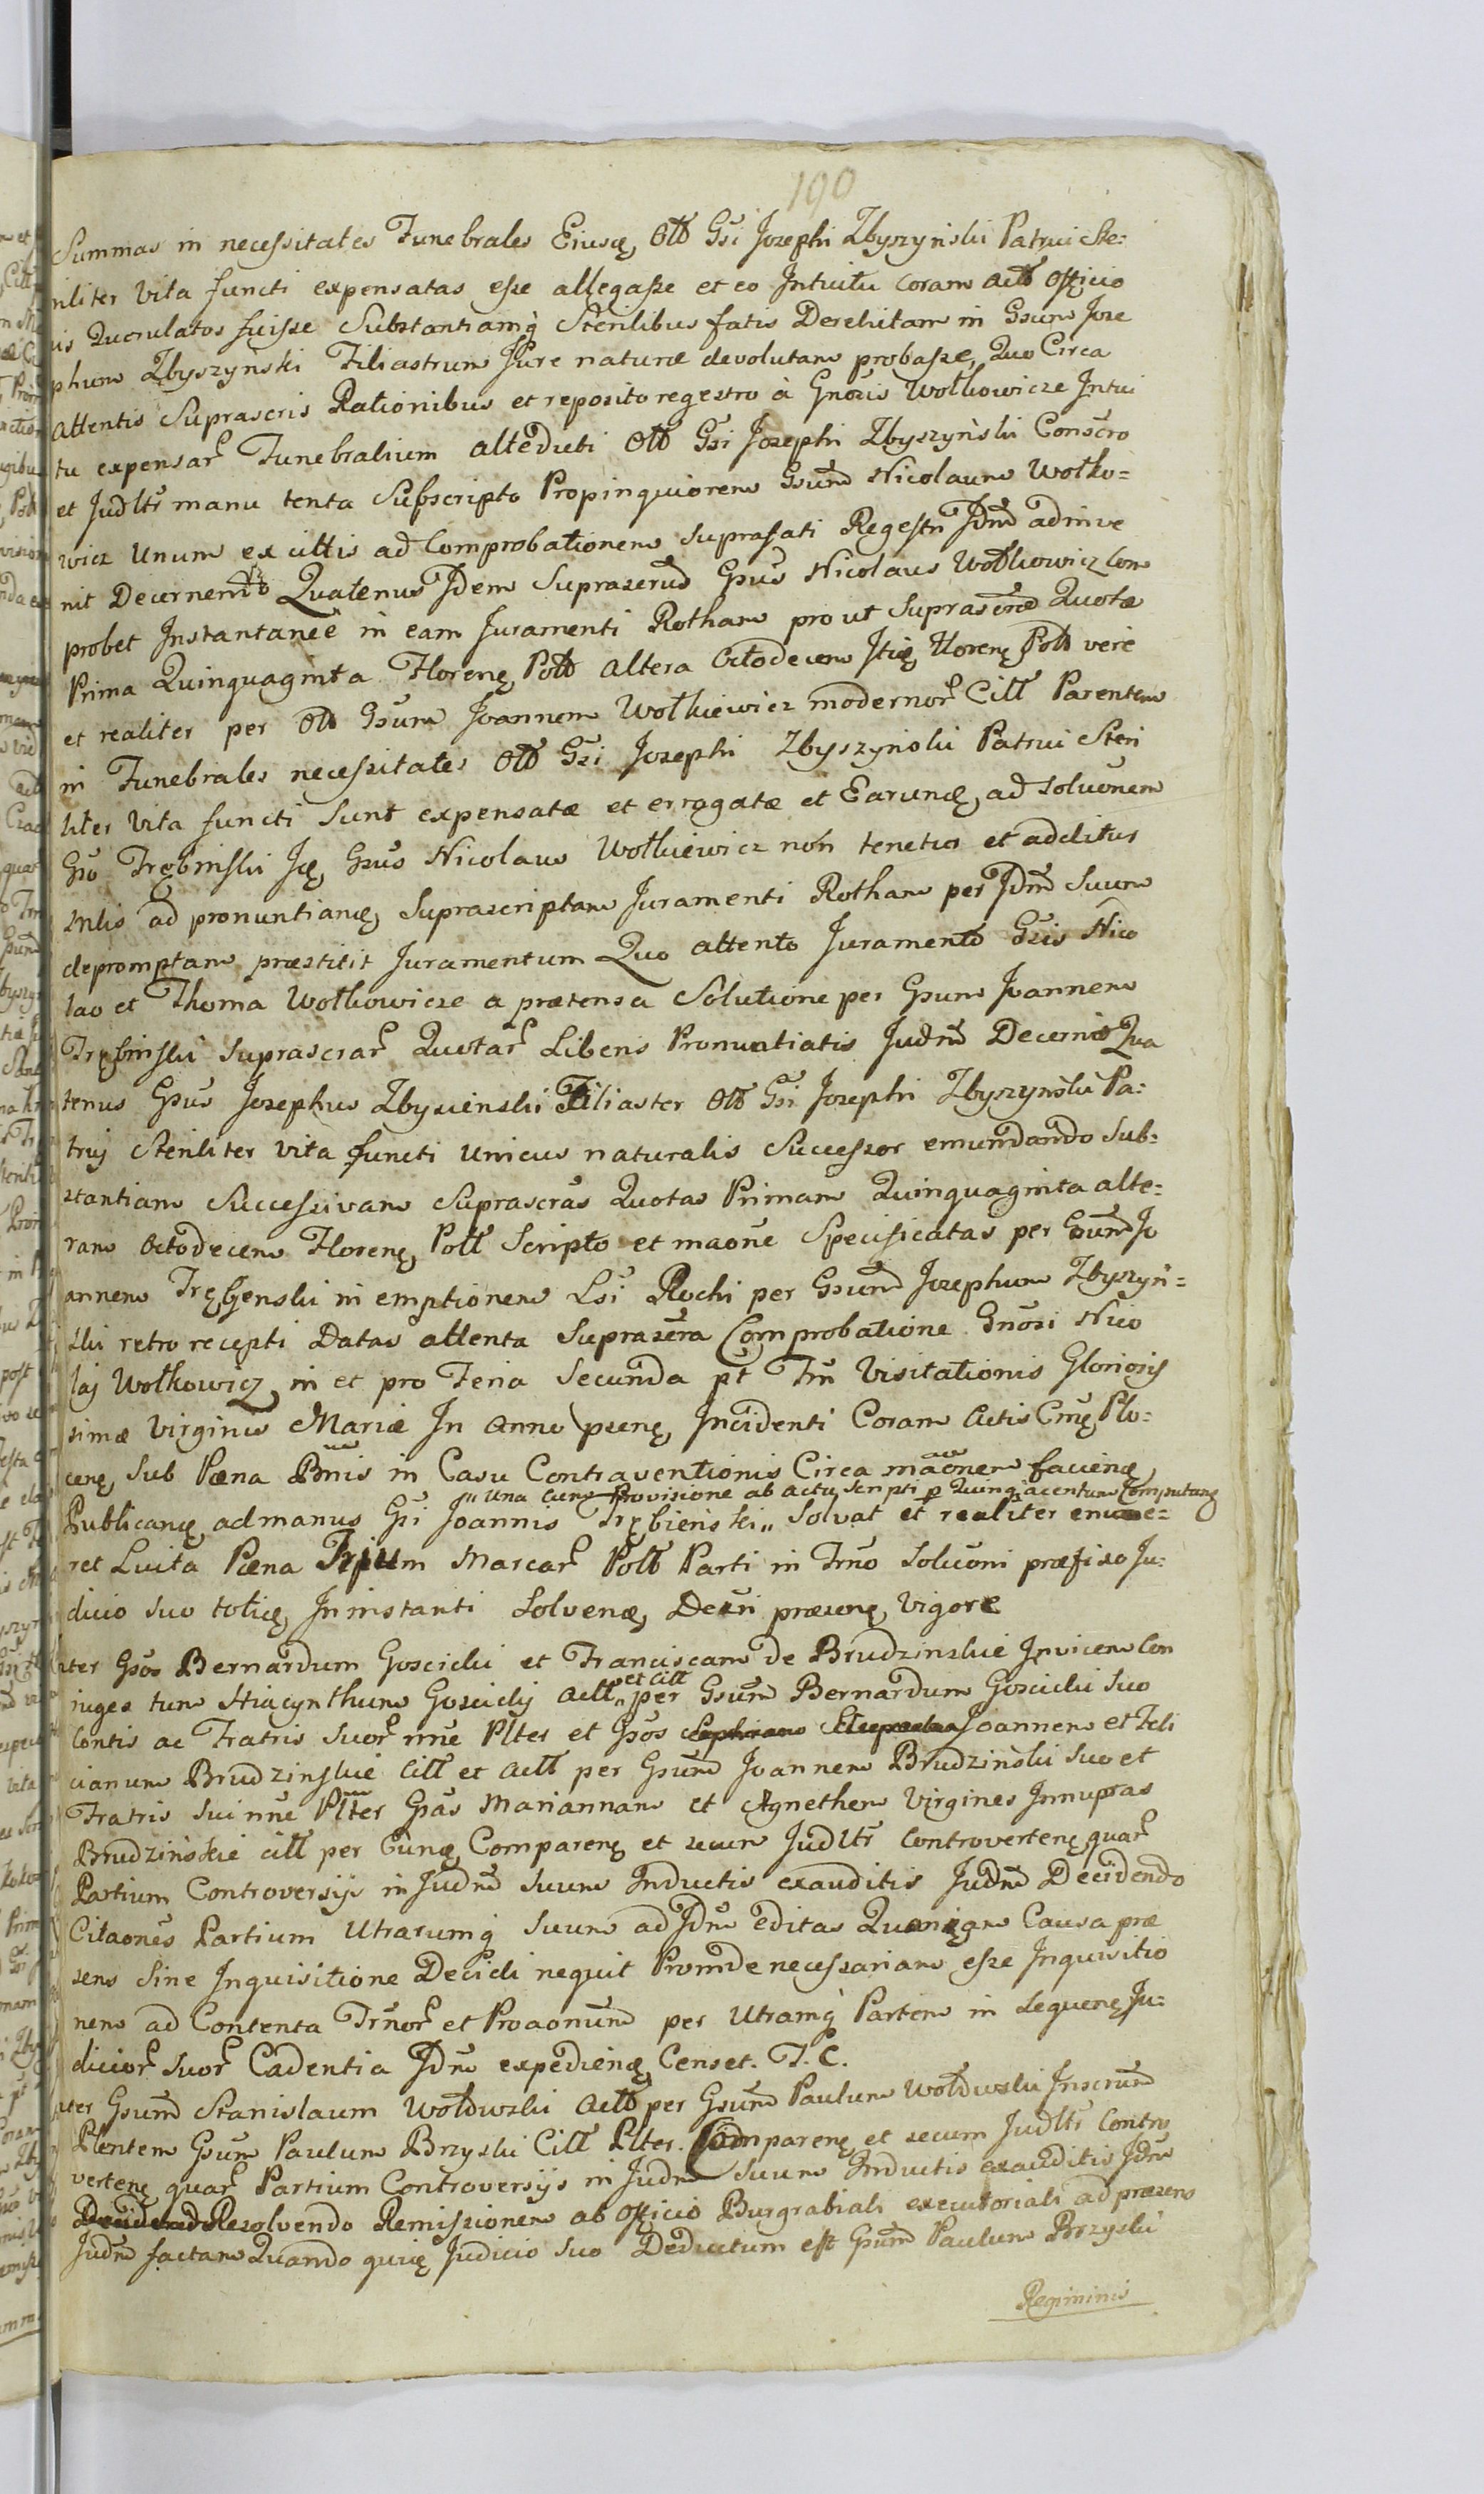 190
Summas in necessitates Funebrales Eiusdę Olb Gsi Josephi Zbyszyński Patrui Ste:
riliter Vita functi expensatas esse allegasse et eo Intuitu coram actb officio
is Querulatos fuisse Substantiamq̀ Sterilibus fatis Derelictam in Gsum Jose
phum Zbyszynski Filiastrum Jure naturæ devolutam probasse, Quo Circa
attentis Suprascris Rationibus et reposito regestro à Gnosis Wołkowicze Intui
tu expensar Funebralium altedicti Olb Gsi Josephi Zbyszyński Conscro
et Judltr manu tenta Subscripto Propinquiorem Gsum Nicolaum Wołko=
wicz Unum ex cittis ad Comprobationem suprafati Regestri Jdm adinve
nit Decernendo Quatenus Idem Suprascrus Gsus Nicolaus Wołkowicz Com
probet Instantanee in eam Juramenti Rotham pro ut Suprascræ Quotæ
Prima Quinquaginta Florenę Poll altera Octodecem Itię florenę Poll verè
et realiter per Olb Gsum Joannem Wołkiewicz modernor Citt Parentem
in Funebrales necessitates Olb Gsi Josephi Zbyszyński Patrui Steri
liter Vita functi Sunt expensatæ et errogatæ et Earundę ad solucnem
Gso Trębinski Idę Gsus Nicolaus Wołkiewicz nón tenetur et additus
mlis ad pronuntiandę Suprascriptam Juramenti Rotham per Jdm Suum
depromptam præstitit Juramentum Quo attento Juramento Gsis Nico
lao et Thoma Wołkowicze a prætensa Solutione per Gsum Joannem
Trębinski Suprascrar Quotar Liberis Pronuntiatis Judm Decernit Qua
tenus Gsus Josephus Zbyszenski Filiaster Olb Gsi Josephi Zbyszyński Pa:
trij steriliter vita functi unicus naturalis Successor emundando sub=
stantiam Successivam Suprascras Quotas Primam Quinquaginta alte=
ram Octodecem Florenę Poll Scripto et maone Specificatas per Gsum Jo
annem Trębenski in emptionem Lsi Rochi per Gsum Josephum Zbyszyń=
ski retro recepti Datas attenta Suprascra Comprobatione Gnosi Nico
laj Wołkowicz, in et pro Feria Secunda pt Frn Visitationis Gloriosis
simæ Virginis Mariæ In Anno prænę Incidenti Coram Actis Cmę Plo=
cenę sub Pæna Bnis in Casu Contraventionis Circa maonem faciendę
,, una cum Provisione ab actu scripti p Quinq̀ à centum Computandę
Publicandę ad manus Gsi Joannis Trębienski ,, Solvat et realiter enume=
ret Luita Pæna Trium Marcar Poll Parti in Trno Solucni præfixo Ju:
dicio suo totidę In instanti Solvendæ, Decri præsenę vigore
Inter Gsos Bernardum Goscicki et Franciscam de Brudzinskie Invicem Con
iuges tum Hiacynthum Goscicky actt ,, et citt per Gsum Bernardum Goscicki suo
Contis ac Fratris Suor nne Plter et Gsos Joannem et Feli
cianum Brudzinskie Citt et actt per Gsum Joannem Brudzinski suo et
Fratris sui nne Plter Gsas Mariannam et Agnethem Virgines Innuptas
Brudzińskie citt per Eundę Comparenę et secum Judltr controvertenę quar
Partium Controversijs in Judm suum Inductis exauditis Judm Decidendo
Citaones Partium Utrarumq̀ suum ad Jdm editas Quoniam Causa præ
sens Sine Inquisitione Decidi nequit Proinde necessariam esse Inquisitio
nem ad Contenta Trnor et Proaonum per Utramq̀ Partem in sequenę Ju=
dicior suor Cadentia Jdm expediendę Censet. T. C.
Inter Gsum Stanislaum Wołdwski Actb per Gsum Paulum Wołdwski Inscrum
Plentem Gsum Paulum Brzyski Citt Plter. Comparenę et secum Judltr Contro
vertenę quar Partium Controversijs in Judm suum Inductis exauditis Jdm
Resolvendo Remissionem ab officio Burgrabiali executoriali ad præsens
Judm factam Quando quidę Judicio suo Deductum est Gsum Paulum Brzyski
Regiminis